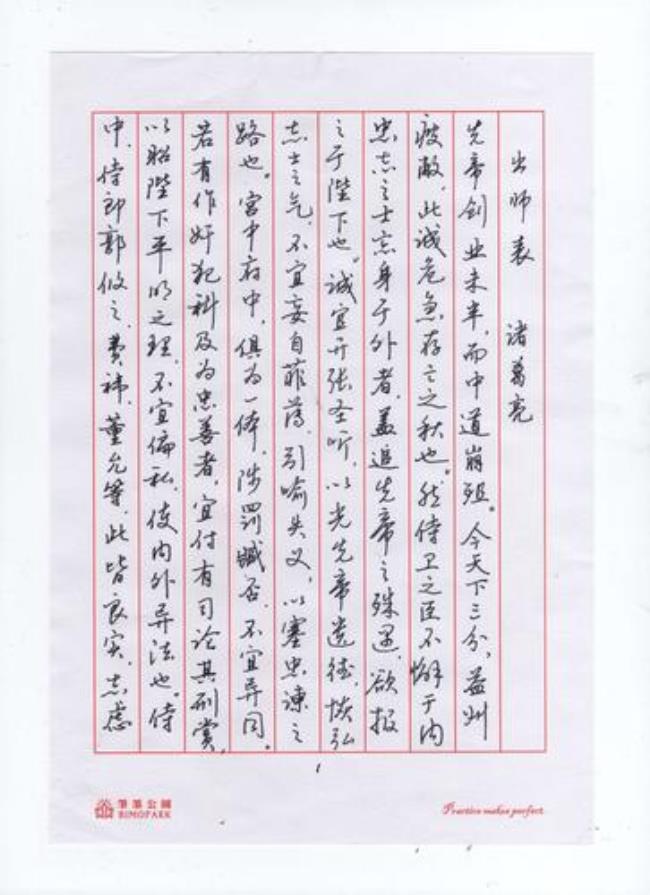 出师表 诸葛亮
先帝创业未半，而中道崩殂。今天下三分，益州
疲敝，此诚危急存亡之秋也。然侍卫之臣不懈于内
忠志之士忘身于外者，盖追先帝之殊遇，欲报
之于陛下也。诚宜开张圣听，以光先帝遗德，恢弘
志士之气，不宜妄自菲薄，引喻失义，以塞忠谏之
路也。宫中府中，俱为一体，陟罚臧否，不宜异同。
若有作奸犯科及为忠善者，宜付有司论其刑赏，
以昭陛下平明之理，不宜偏私，使内外异法也。侍
中、侍郎郭攸之、费祎、董允等，此皆良实，志虑
筆墨公園
BIMOPARK
Practice makes perfect